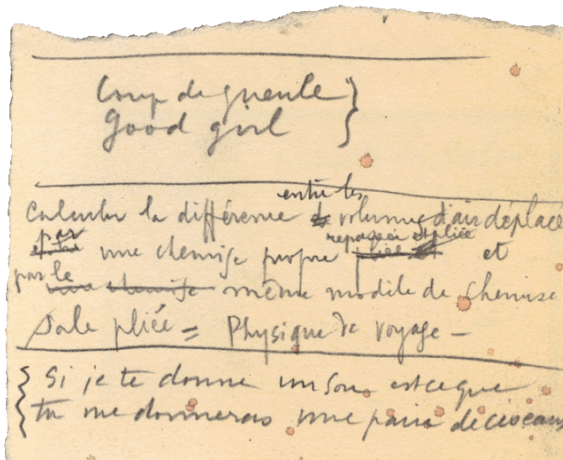 Coup de gueule }
Good girl
Calculer la différence entre les volumes d'air déplacé
par une chemise propre repassée et pliée et
par le même modèle de chemise
sale pliée = Physique de voyage –
{ Si je te donne un sou est ce que
tu me donneras une paire de ciseaux